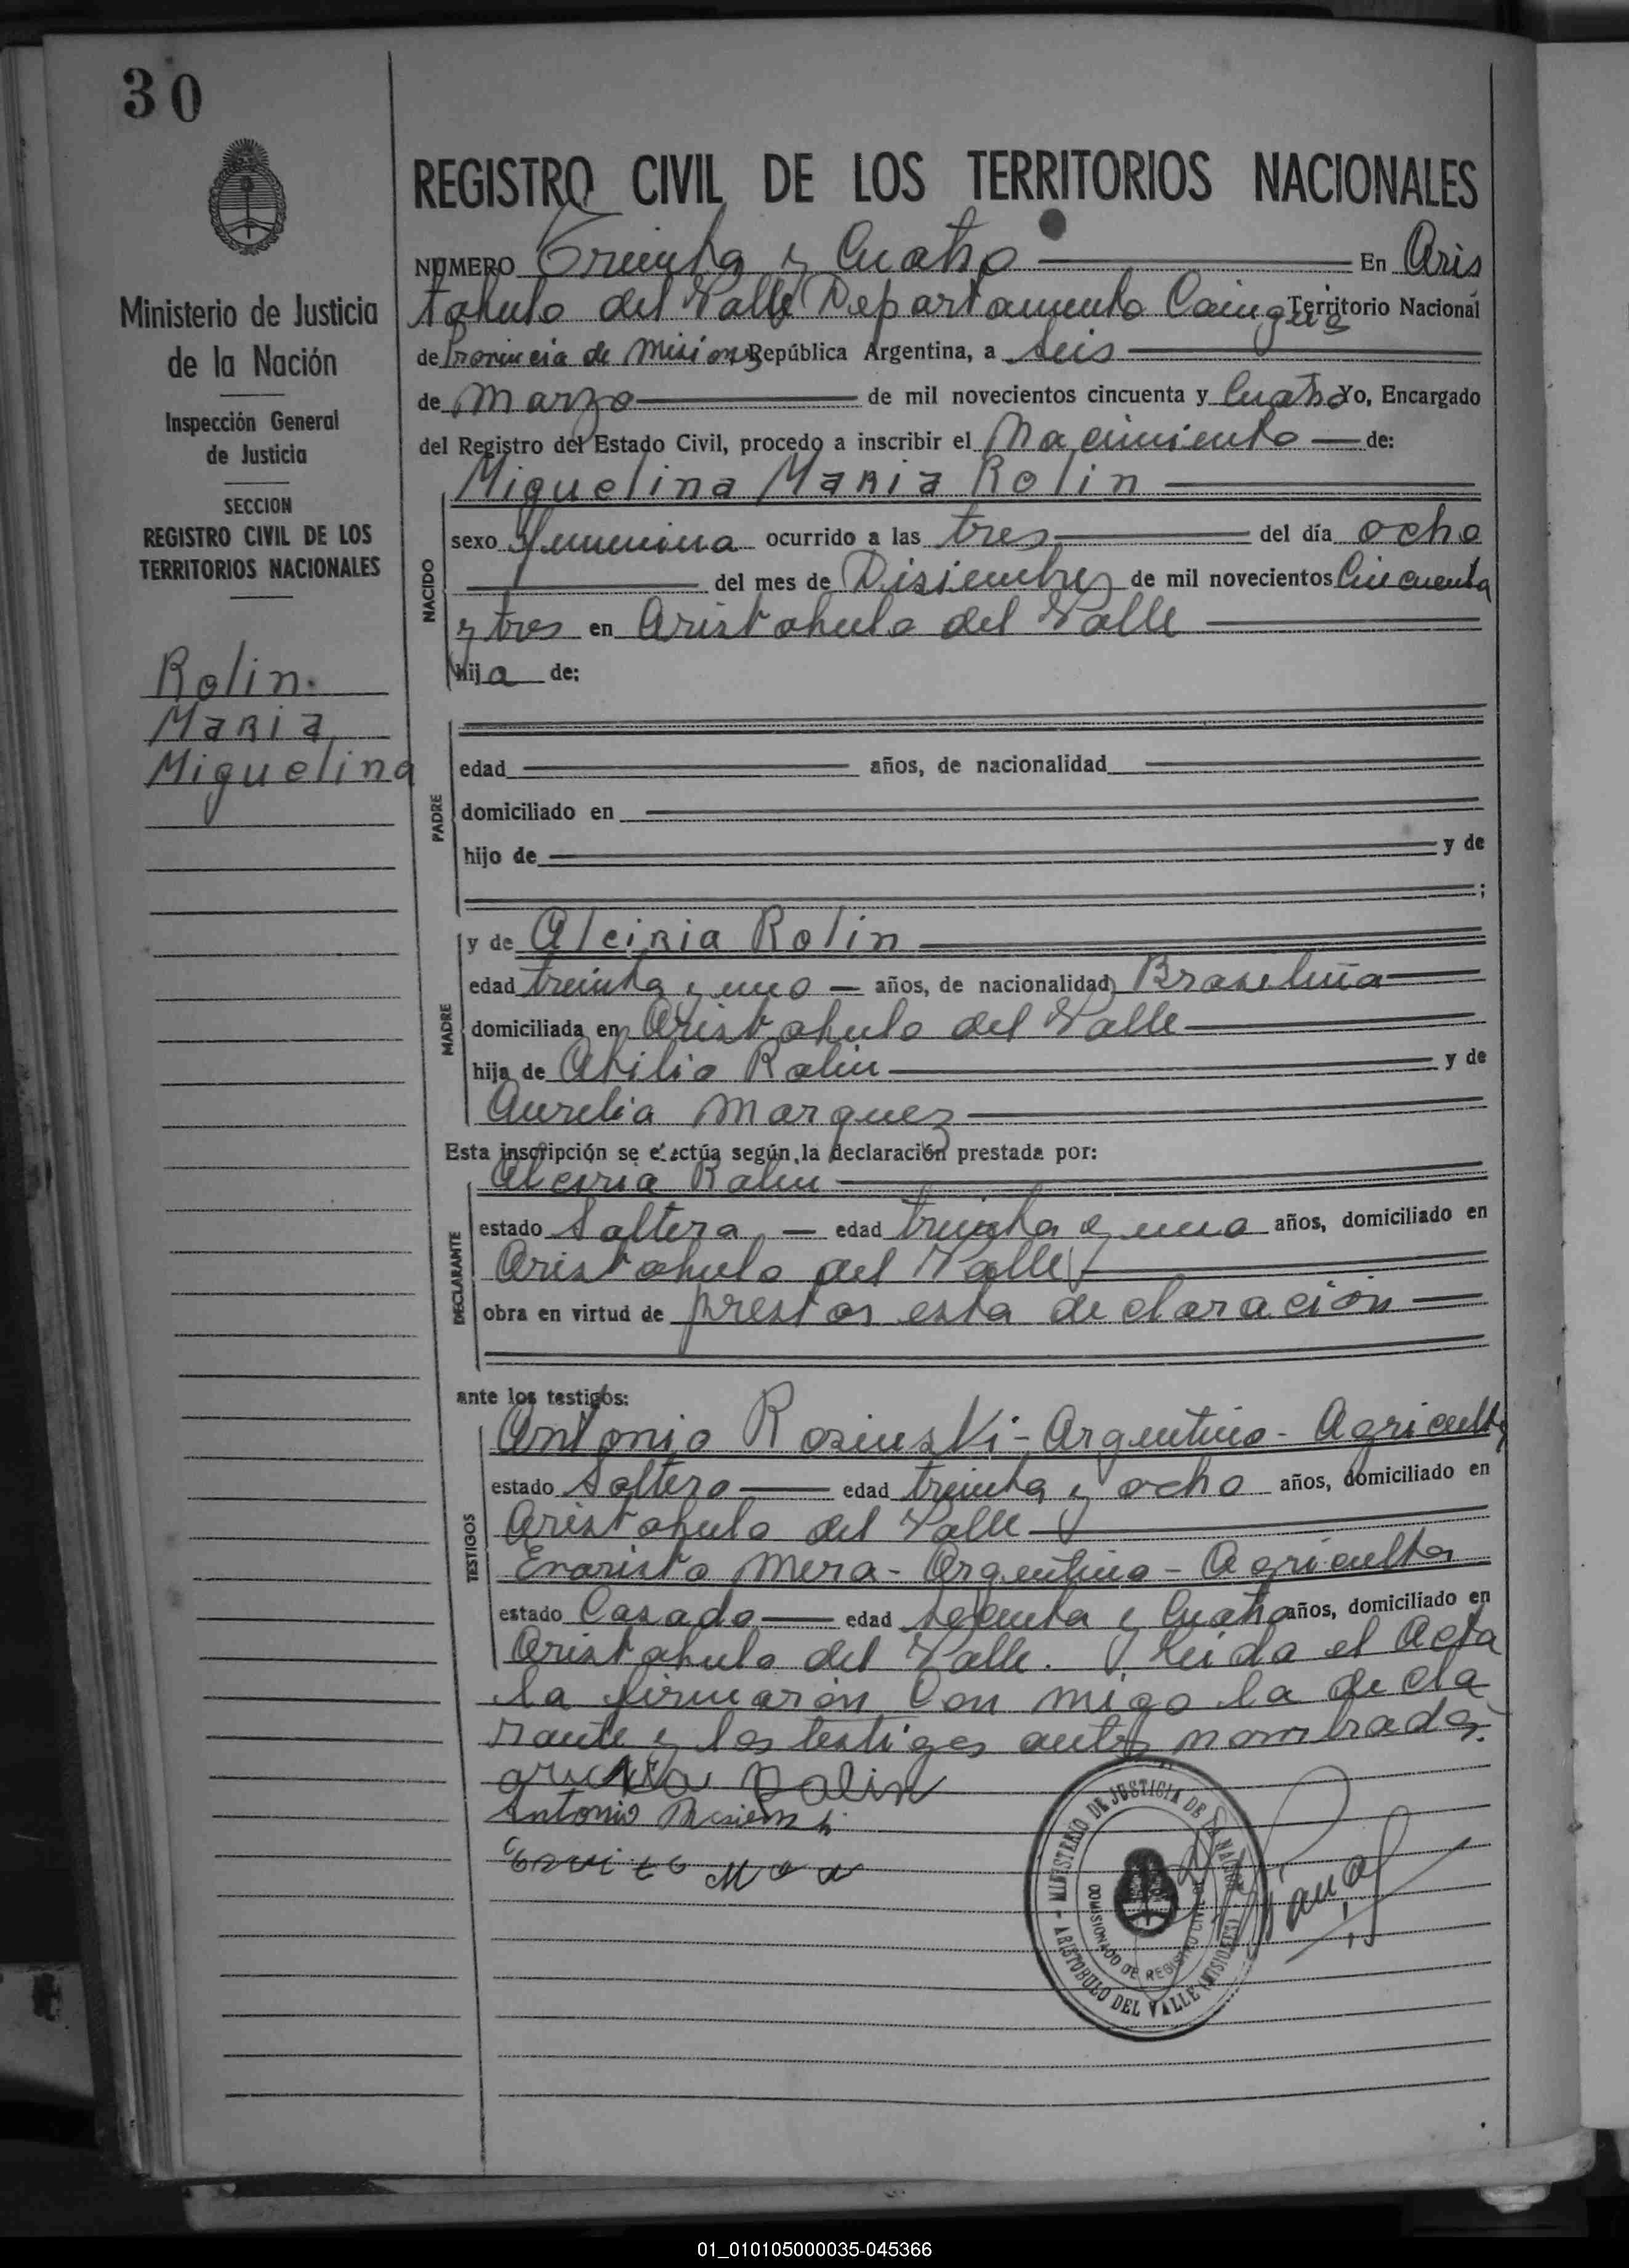 30
REGISTRO CIVIL DE LOS TERRITORIOS NACIONALES
NUMERO Treinta y Cuatro En Aris
tobulo del Valle Departamento Cainguas Territorio Nacional
de Provincia de Misiones República Argentina, a Seis
de Marzo de mil novecientos cincuenta y Cuatro Yo, Encargado
del Registro del Estado Civil, procedo a inscribir el Nacimiento de:
Miguelina Maria Rolin
sexo femenina ocurrido a las tres del día ocho
del mes de Disiembre de mil novecientos Cincuenta
y tres en Aristobulo del Valle
hija de:
NACIDO
Ministerio de Justicia
de la Nación
Inspección General
de Justicia
SECCION
REGISTRO CIVIL DE LOS
TERRITORIOS NACIONALES
Rolin.
Maria
Miguelina
PADRE
edad años, de nacionalidad
domiciliado en
hijo de y de
;
MADRE
y de Alciria Rolin
edad treinta y uno años, de nacionalidad Brasileña
domiciliada en Aristobulo del Valle
hija de Abilio Rolin y de
Aurelia Marquez
Esta inscripción se efectúa según la declaración prestada por:
DECLARANTE
Alciria Rolin
estado Soltera edad treinta y uno años, domiciliado en
Aristobulo del Valle
obra en virtud de prestar esta declaración
ante los testigos:
TESTIGOS
Antonio Rosinski - Argentino - Agricultor
estado Soltero edad treinta y ocho años, domiciliado en
Aristobulo del Valle
Evaristo Mera - Argentino - Agricultor
estado Casado edad y Cuatro años, domiciliado en
Aristobulo del Valle. Leida el Acta
la firmaron con migo la decla
rante y los testigos antes nombrados.
Rolin
Antonio
MINISTERIO DE JUSTICIA DE LA NACION
COMISIONADO DE REGISTRO CIVIL
ARISTOBULO DEL VALLE (MISIONES)
01_010105000035-045366